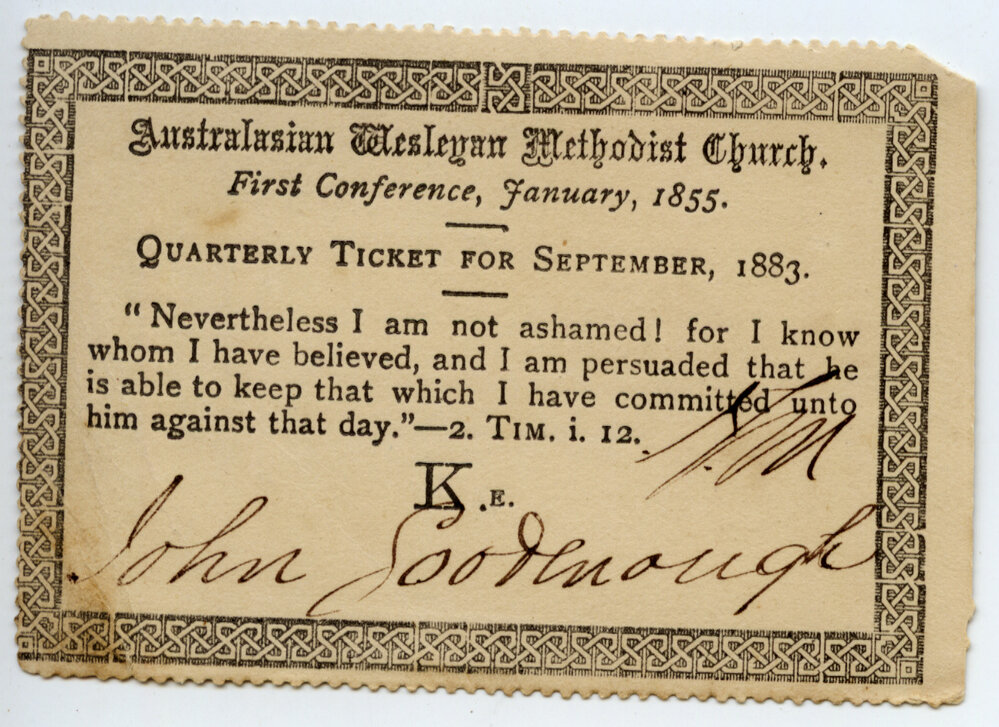 Australasian Wesleyan Methodist Church.
First Conference, January, 1855.
QUARTERLY TICKET FOR SEPTEMBER, 1883.
"Nevertheless I am not ashamed! for I know
whom I have believed, and I am persuaded that he
is able to keep that which I have committed unto
him against that day."—2. TIM. i. 12.
K.E.
John Goodenough